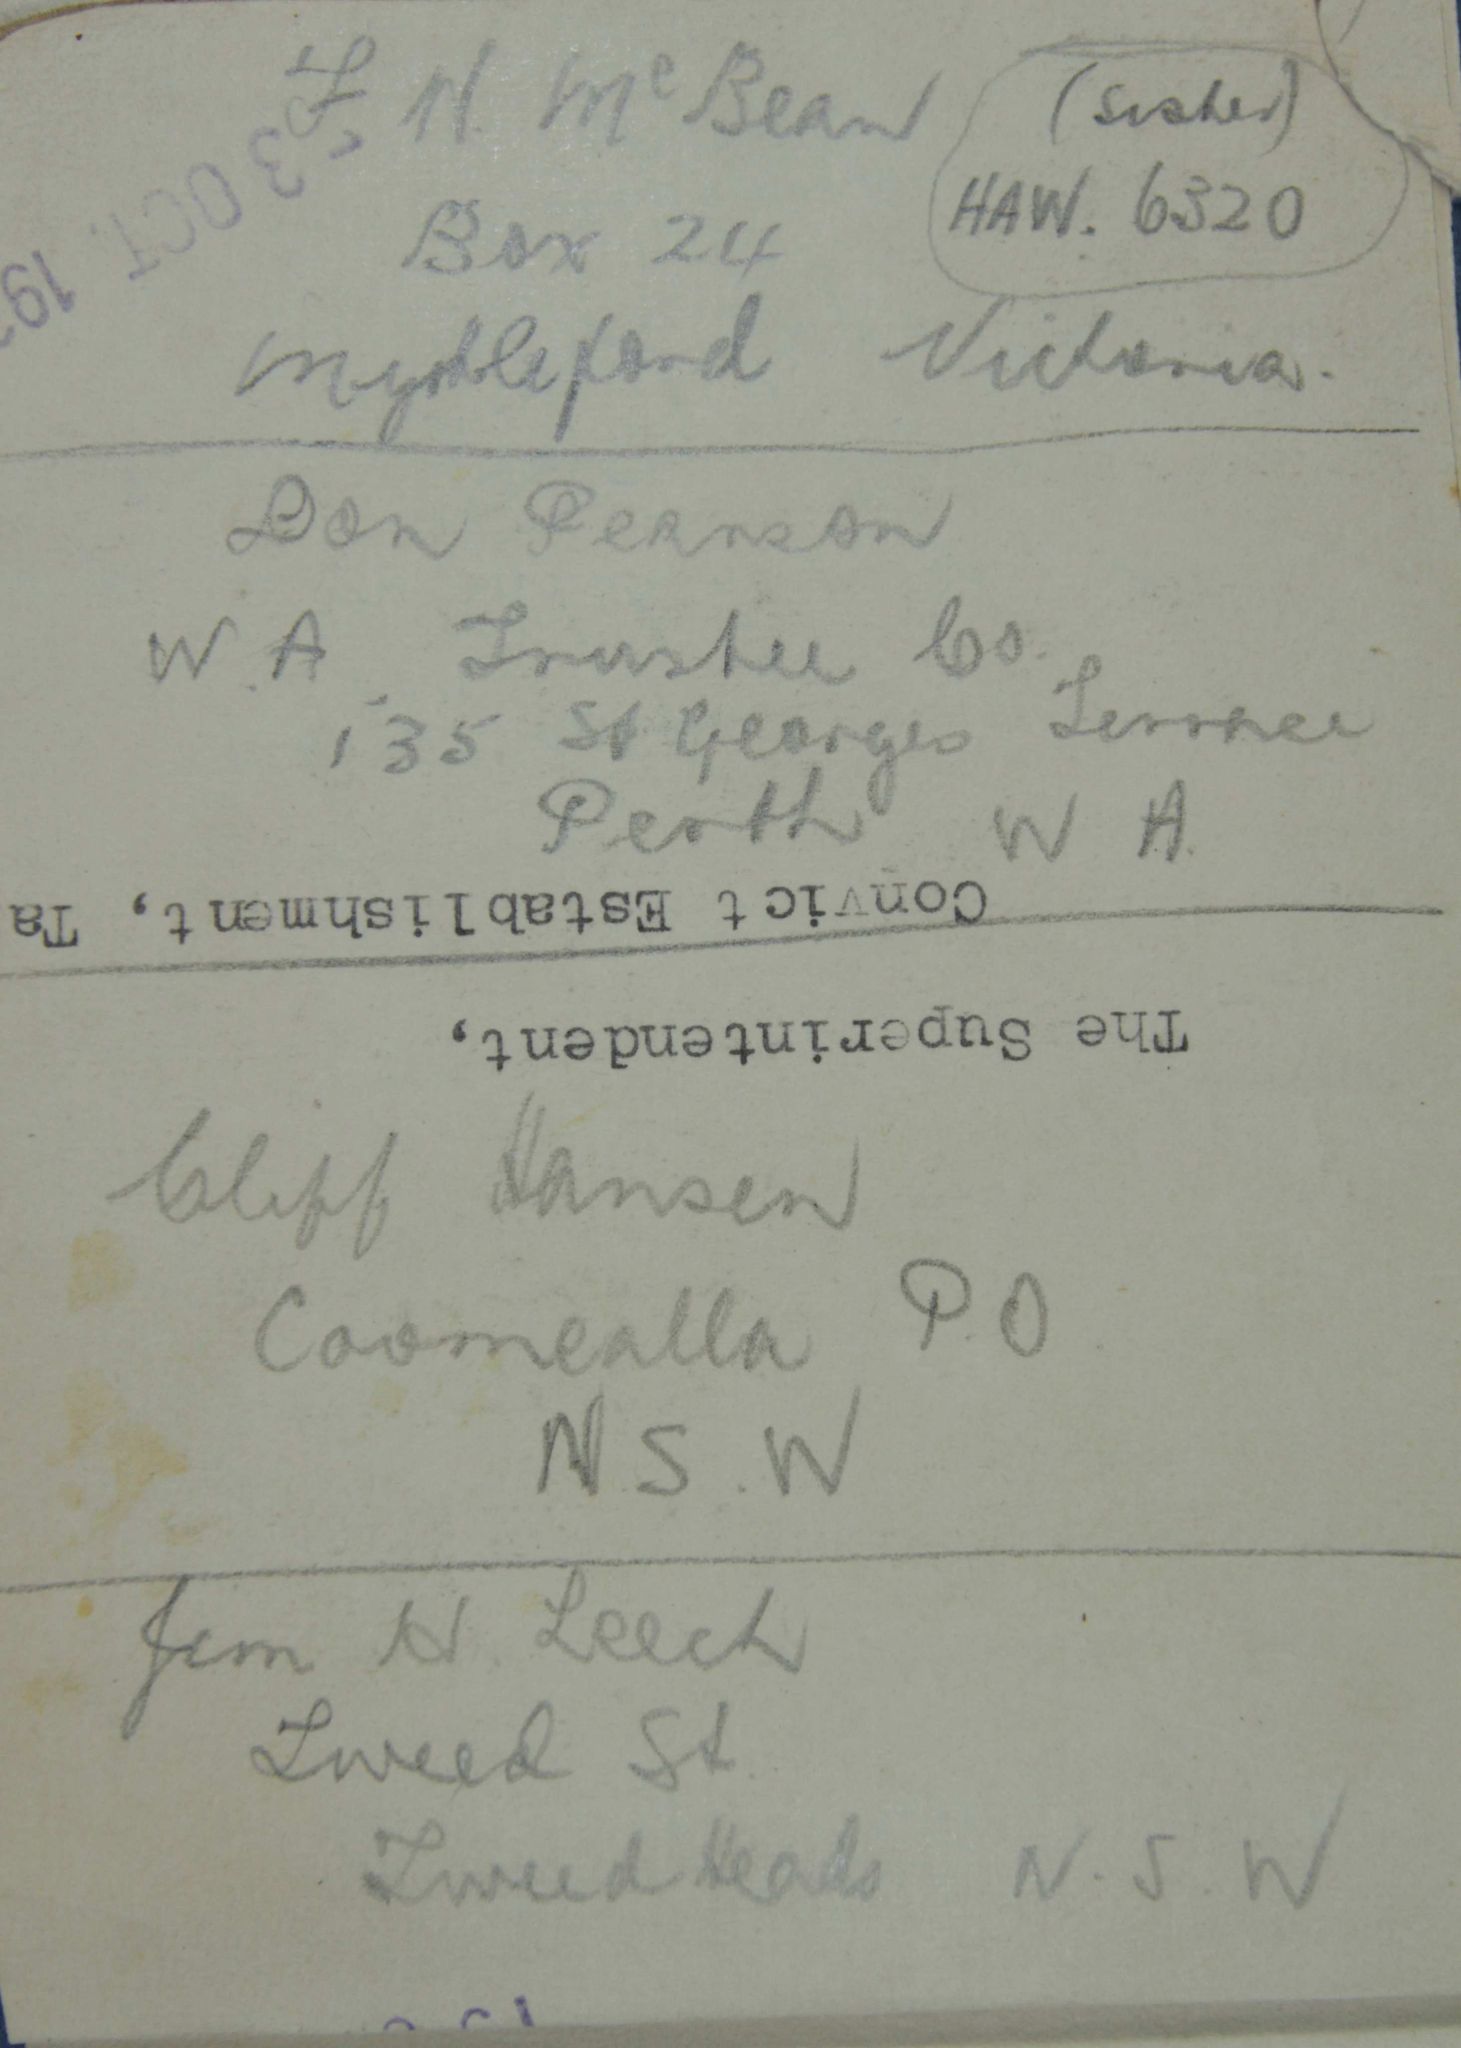 F N. Mc Bean (Sister)
HAW. 6320
3 OCT. 19
Box 24
Myrtleford Victoria.
Don Pearson
W.A. Trustee Co.
135 St Georges Terrace
Perth W A.
Convict Establishment, Ta
The Superintendent,
Cliff Hansen
Coomealla P.O
N.S.W
Jim H. Leech
Tweed St.
Tweed Heads N.S.W